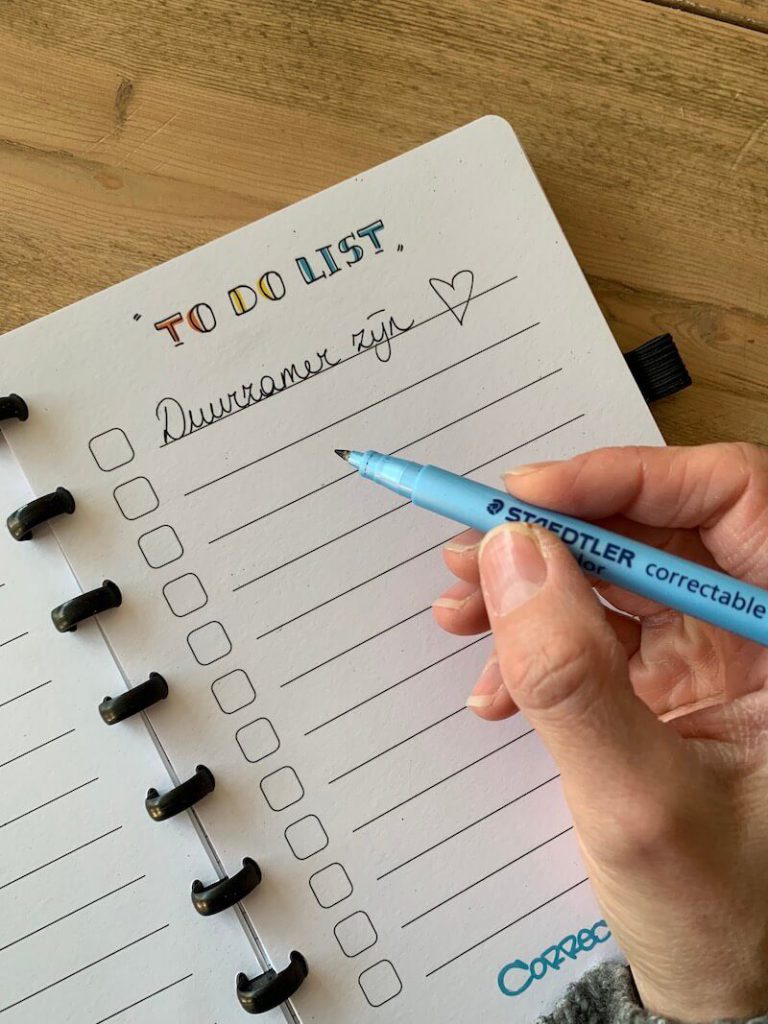 " TO DO LIST "
Duurzamer zijn ♡
STAEDTLER correctable
Correc